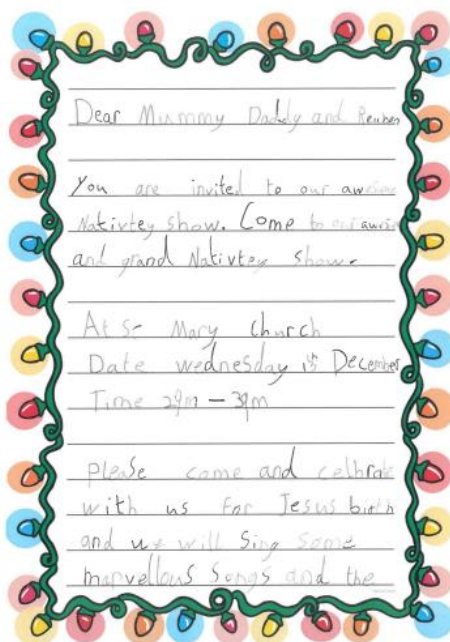 Dear Mummy Daddy and Reuben
You are invited to our awesome
Nativtey show. Come to our
and grand Nativtey show.
At S- Mary Church
Date wednesday December
Time 2pm - 3pm
please come and celbrate
with us for Jesus birth
and we will sing some
marvellous songs and the